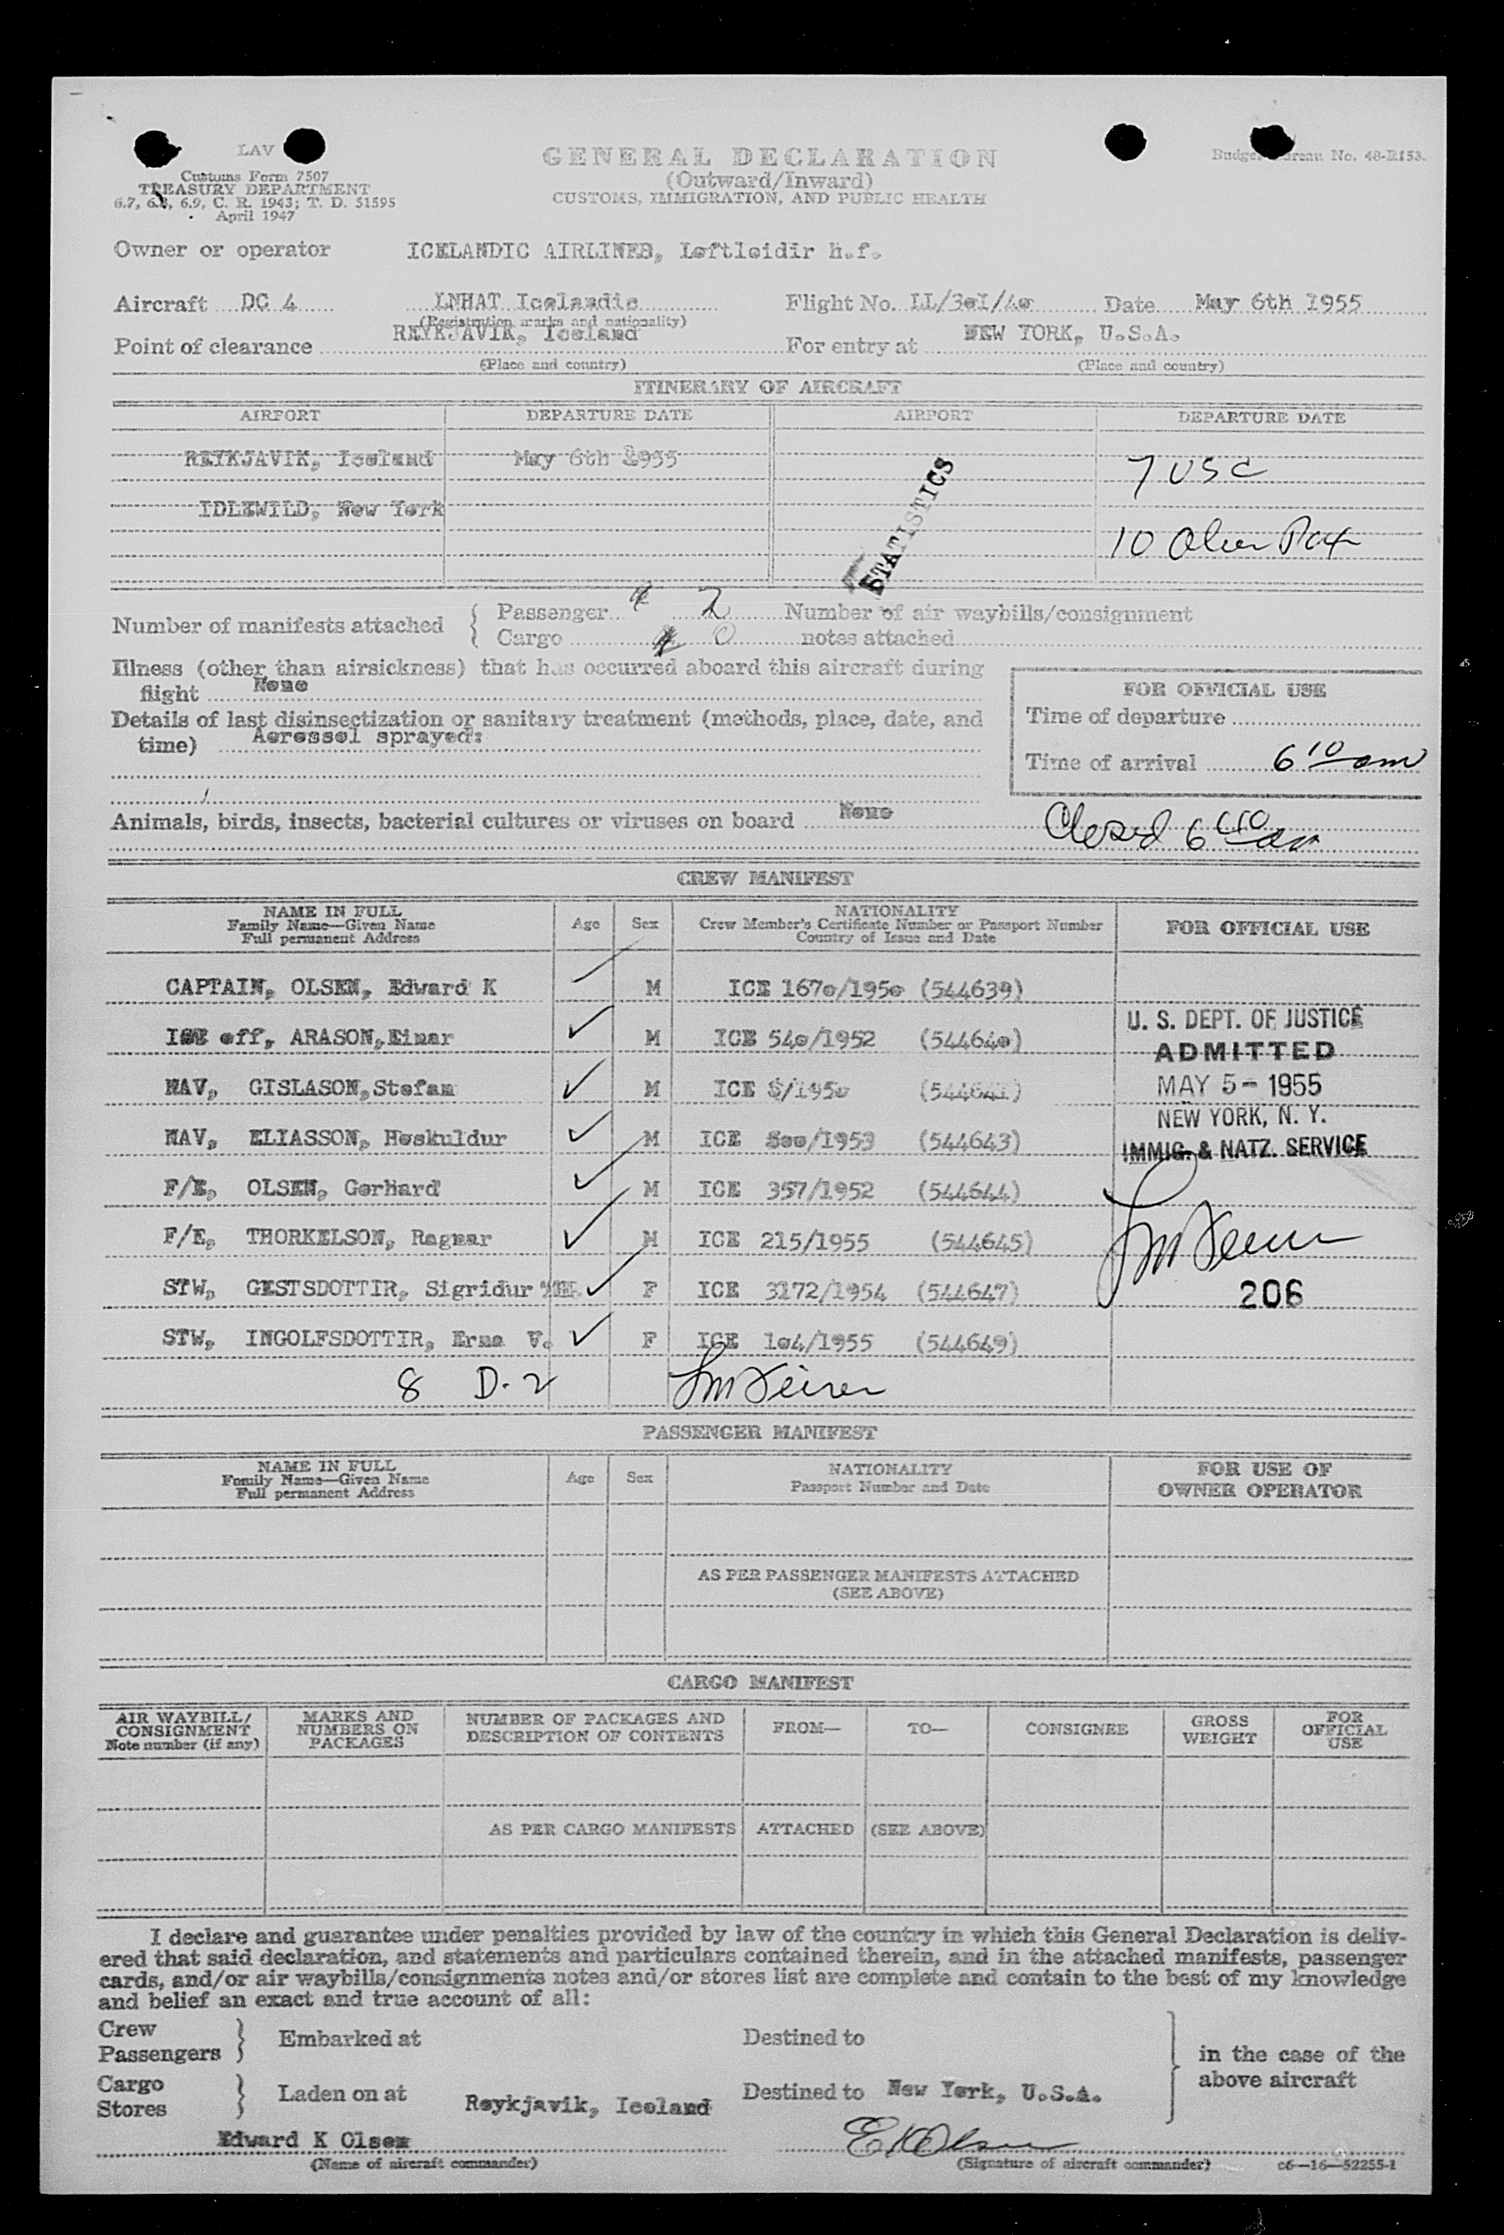 LAV
Customs Form 7507
TREASURY DEPARTMENT
6.7, 6.8, 6.9, C. R. 1943; T. D. 51595
April 1947
GENERAL DECLARATION
(Outward/Inward)
CUSTOMS, IMMIGRATION, AND PUBLIC HEALTH
Budget Bureau No. 48-R153.
Owner or operator ICELANDIC AIRLINES, Loftleidir h.f.
Aircraft DC 4 LNHAT Icelandic Flight No. LL/3o1/4o Date May 6th 1955
(Registration marks and nationality)
Point of clearance REYKJAVIK, Iceland For entry at NEW YORK, U.S.A.
(Place and country) (Place and country)
ITINERARY OF AIRCRAFT
AIRPORT DEPARTURE DATE AIRPORT DEPARTURE DATE
REYKJAVIK, Iceland May 6th 1955 7 USC
IDLEWILD, New York
STATISTICS
10
Number of manifests attached { Passenger 2 Number of air waybills/consignment
Cargo 0 notes attached
Illness (other than airsickness) that has occurred aboard this aircraft during
flight None
Details of last disinsectization or sanitary treatment (methods, place, date, and
time) Aerossol sprayed:
FOR OFFICIAL USE
Time of departure
Time of arrival 6 10 am
Animals, birds, insects, bacterial cultures or viruses on board None
Closed 6
CREW MANIFEST
NAME IN FULL
Family Name—Given Name
Full permanent Address
Age Sex
NATIONALITY
Crew Member's Certificate Number or Passport Number
Country of Issue and Date
FOR OFFICIAL USE
CAPTAIN, OLSEN, Edward K M ICE 167o/195o (544639)
off, ARASON, Einar M ICE 54o/1952 (54464o)
NAV, GISLASON, Stefan M ICE 8/195o (544641)
NAV, ELIASSON, Hoskuldur M ICE 5oo/1953 (544643)
F/E, OLSEN, Gerhard M ICE 357/1952 (544644)
F/E, THORKELSON, Ragnar M ICE 215/1955 (544645)
STW, GESTSDOTTIR, Sigridur F ICE 3172/1954 (544647)
STW, INGOLFSDOTTIR, Erna V. F ICE 1o4/1955 (544649)
8 D-2
U. S. DEPT. OF JUSTICE
ADMITTED
MAY 5- 1955
NEW YORK, N. Y.
IMMIG. & NATZ. SERVICE
206
PASSENGER MANIFEST
NAME IN FULL
Family Name—Given Name
Full permanent Address
Age Sex
NATIONALITY
Passport Number and Date
FOR USE OF
OWNER OPERATOR
AS PER PASSENGER MANIFESTS ATTACHED
(SEE ABOVE)
CARGO MANIFEST
AIR WAYBILL/
CONSIGNMENT
Note number (if any)
MARKS AND
NUMBERS ON
PACKAGES
NUMBER OF PACKAGES AND
DESCRIPTION OF CONTENTS
FROM—
TO—
CONSIGNEE
GROSS
WEIGHT
FOR
OFFICIAL
USE
AS PER CARGO MANIFESTS ATTACHED (SEE ABOVE)
I declare and guarantee under penalties provided by law of the country in which this General Declaration is deliv-
ered that said declaration, and statements and particulars contained therein, and in the attached manifests, passenger
cards, and/or air waybills/consignments notes and/or stores list are complete and contain to the best of my knowledge
and belief an exact and true account of all:
Crew
Passengers } Embarked at Destined to
in the case of the
above aircraft
Cargo
Stores } Laden on at Reykjavik, Iceland Destined to New York, U.S.A.
Edward K Olsen EKOlsen
(Name of aircraft commander) (Signature of aircraft commander) c6—16—52255-1